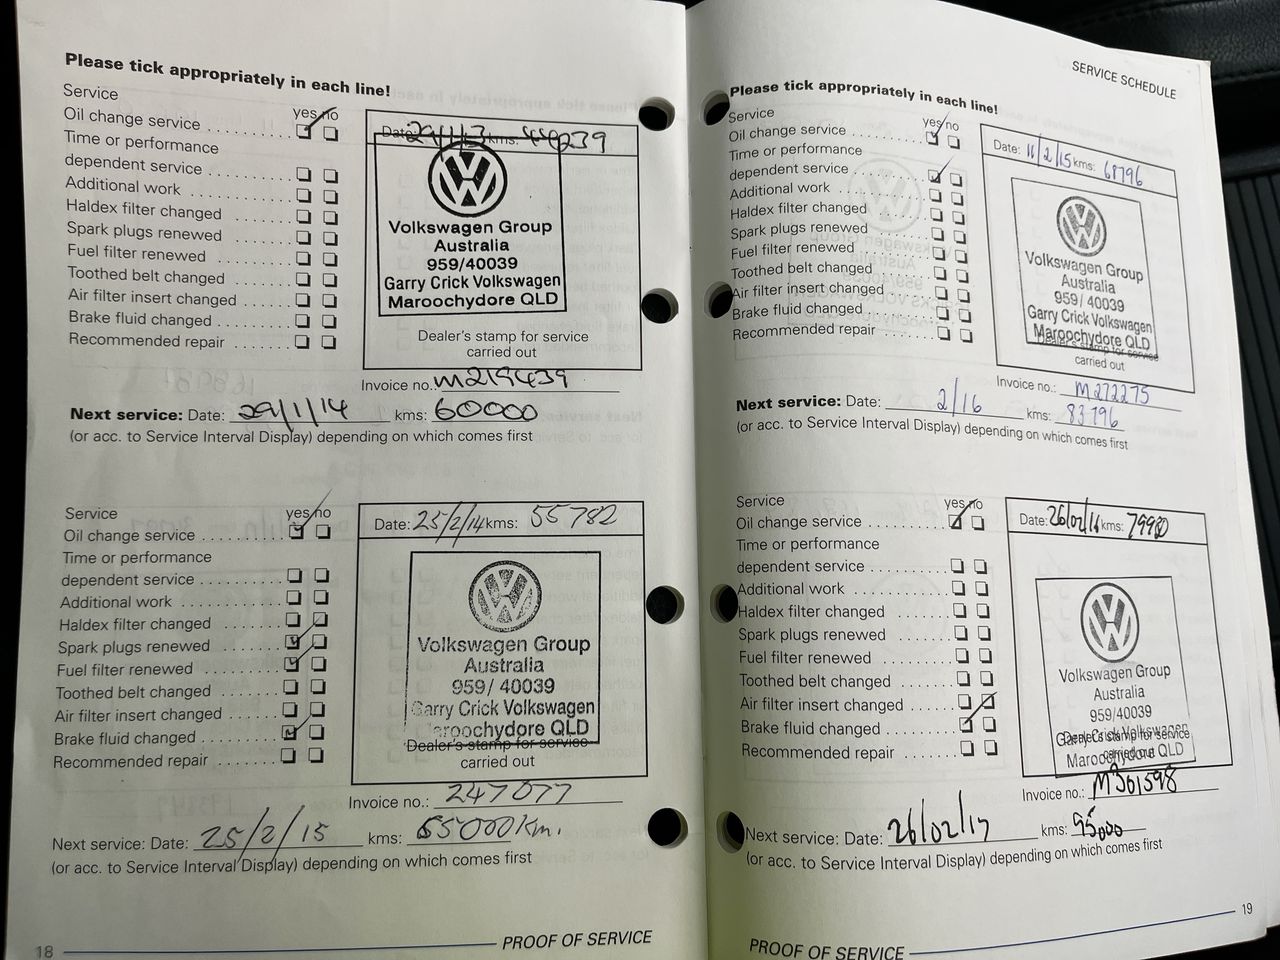 Please tick appropriately in each line!
Service
yes no
Oil change service
Time or performance
dependent service
Additional work
Haldex filter changed
Spark plugs renewed
Fuel filter renewed
Toothed belt changed
Air filter insert changed
Brake fluid changed
Recommended repair
Date: kms:
Volkswagen Group
Australia
959/40039
Garry Crick Volkswagen
Maroochydore QLD
Dealer's stamp for service
carried out
Invoice no.: M219439
Next service: Date: 29/1/14 kms: 60000
(or acc. to Service Interval Display) depending on which comes first
Service
yes no
Oil change service
Time or performance
dependent service
Additional work
Haldex filter changed
Spark plugs renewed
Fuel filter renewed
Toothed belt changed
Air filter insert changed
Brake fluid changed
Recommended repair
Date: 25/2/14 kms: 55782
Volkswagen Group
Australia
959/ 40039
Garry Crick Volkswagen
Maroochydore QLD
Dealer's stamp for service
carried out
Invoice no.: 247077
Next service: Date: 25/2/15 kms:
(or acc. to Service Interval Display) depending on which comes first
18 PROOF OF SERVICE
SERVICE SCHEDULE
Please tick appropriately in each line!
Service
yes no
Oil change service
Time or performance
dependent service
Additional work
Haldex filter changed
Spark plugs renewed
Fuel filter renewed
Toothed belt changed
Air filter insert changed
Brake fluid changed
Recommended repair
Date: 11/2/15 kms: 68796
Volkswagen Group
Australia
959/ 40039
Garry Crick Volkswagen
Maroochydore QLD
Dealer's stamp for service
carried out
Invoice no.: M272275
Next service: Date: 2/16 kms: 83796
(or acc. to Service Interval Display) depending on which comes first
Service
yes no
Oil change service
Time or performance
dependent service
Additional work
Haldex filter changed
Spark plugs renewed
Fuel filter renewed
Toothed belt changed
Air filter insert changed
Brake fluid changed
Recommended repair
Date: 26/02/16 kms:
Volkswagen Group
Australia
959/40039
Garry Crick Volkswagen
Dealer's stamp for service
carried out
Maroochydore QLD
Invoice no.: M301598
Next service: Date: 26/02/17 kms: 95000
(or acc. to Service Interval Display) depending on which comes first
PROOF OF SERVICE 19